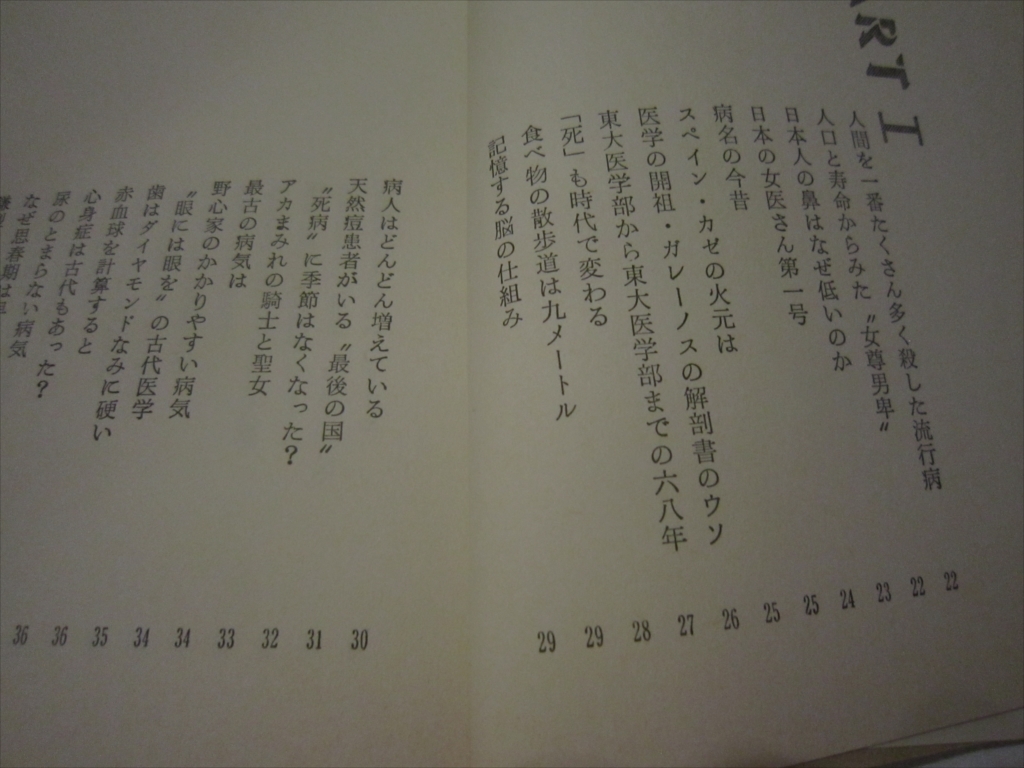 ART I
人間を一番たくさん多く殺した流行病 22
人口と寿命からみた〝女尊男卑〟 22
日本人の鼻はなぜ低いのか 23
日本の女医さん第一号 24
病名の今昔 25
スペイン・カゼの火元は 25
医学の開祖・ガレーノスの解剖書のウソ 26
東大医学部から東大医学部までの六八年 27
「死」も時代で変わる 28
食べ物の散歩道は九メートル 29
記憶する脳の仕組み 29
病人はどんどん増えている 30
天然痘患者がいる〝最後の国〟 31
〝死病〟に季節はなくなった? 32
アカまみれの騎士と聖女 33
最古の病気は 34
野心家のかかりやすい病気 34
〝眼には眼を〟の古代医学 35
歯はダイヤモンドなみに硬い 36
赤血球を計算すると 36
心身症は古代もあった?
尿のとまらない病気
なぜ思春期